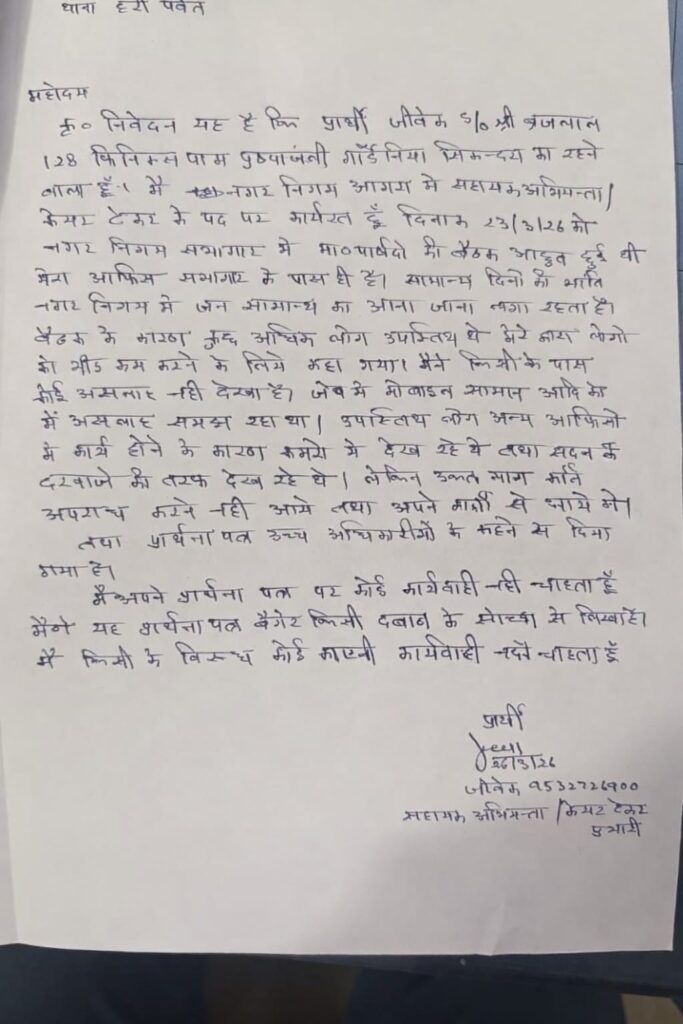 थाना हरी पर्वत
महोदय
कृ० निवेदन यह है कि प्रार्थी जीवेक S/o श्री ब्रजलाल
128 फिनिक्स पाम पुष्पांजली गॉर्डेनिया सिकन्दरा का रहने
वाला हूँ। मै नगर निगम आगरा मे सहायक अभियन्ता/
केयर टेकर के पद पर कार्यरत हूँ दिनांक 23/3/26 को
नगर निगम सभागार मे मा० पार्षदो की बैठक आहुत हुई थी
मेरा आफिस सभागार के पास ही है। सामान्य दिनो की भांति
नगर निगम मे जन सामान्य का आना जाना लगा रहता है।
बैठक के कारण कुछ अधिक लोग उपस्तिथ थे मेरे द्वारा लोगो
को भीड कम करने के लिये कहा गया। मैने किसी के पास
कोई असलाह नही देखा है। जेब मे मोबाइल सामान आदि को
में असलाह समझ रहा था। उपस्तिथ लोग अन्य आफिसो
मे कार्य होने के कारण कमरो मे देख रहे थे तथा सदन के
दरवाजे की तरफ देख रहे थे। लेकिन उक्त लोग कोई
अपराध करने नही आये तथा अपने कार्यो से आये थे।
तथा प्रार्थना पत्र उच्च अधिकारीयों के कहने से दिया
गया है।
मै अपने प्रार्थना पत्र पर कोई कार्यवाही नही चाहता हूँ
मैने यह प्रार्थना पत्र बैगेर किसी दबाव के स्वेच्छा से लिखा है।
मै किसी के विरूध कोई कानूनी कार्यवाही नही चाहता हूँ
प्रार्थी
26/3/26
जीवेक 9532726900
सहायक अभियन्ता /केयर टेकर
प्रभारी